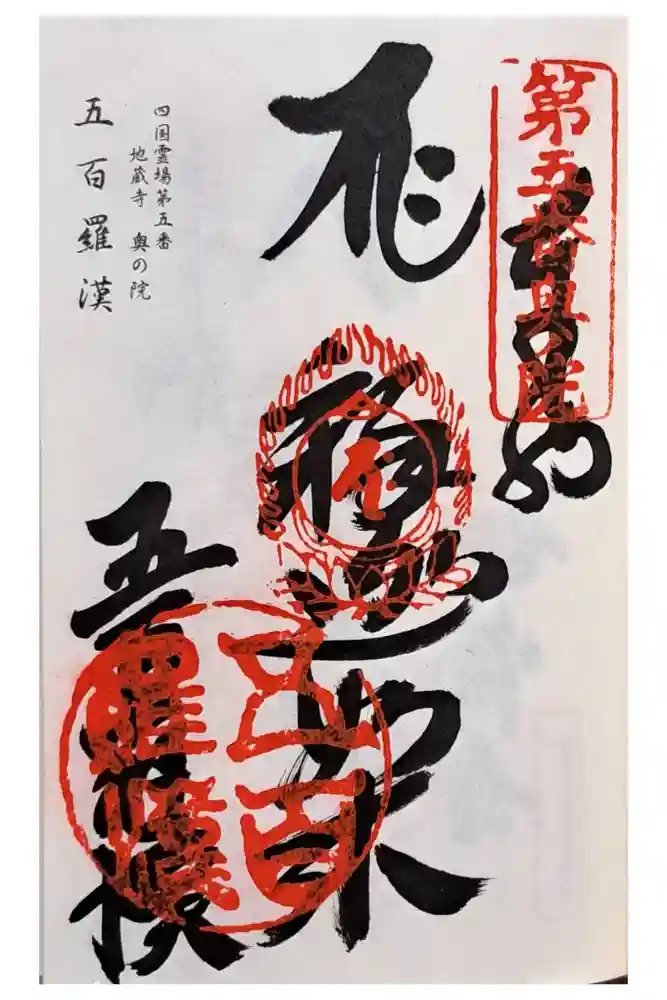 第五番奥院
如来
五百羅漢
五百
羅漢
四国霊場第五番
地蔵寺 奥の院
五百羅漢